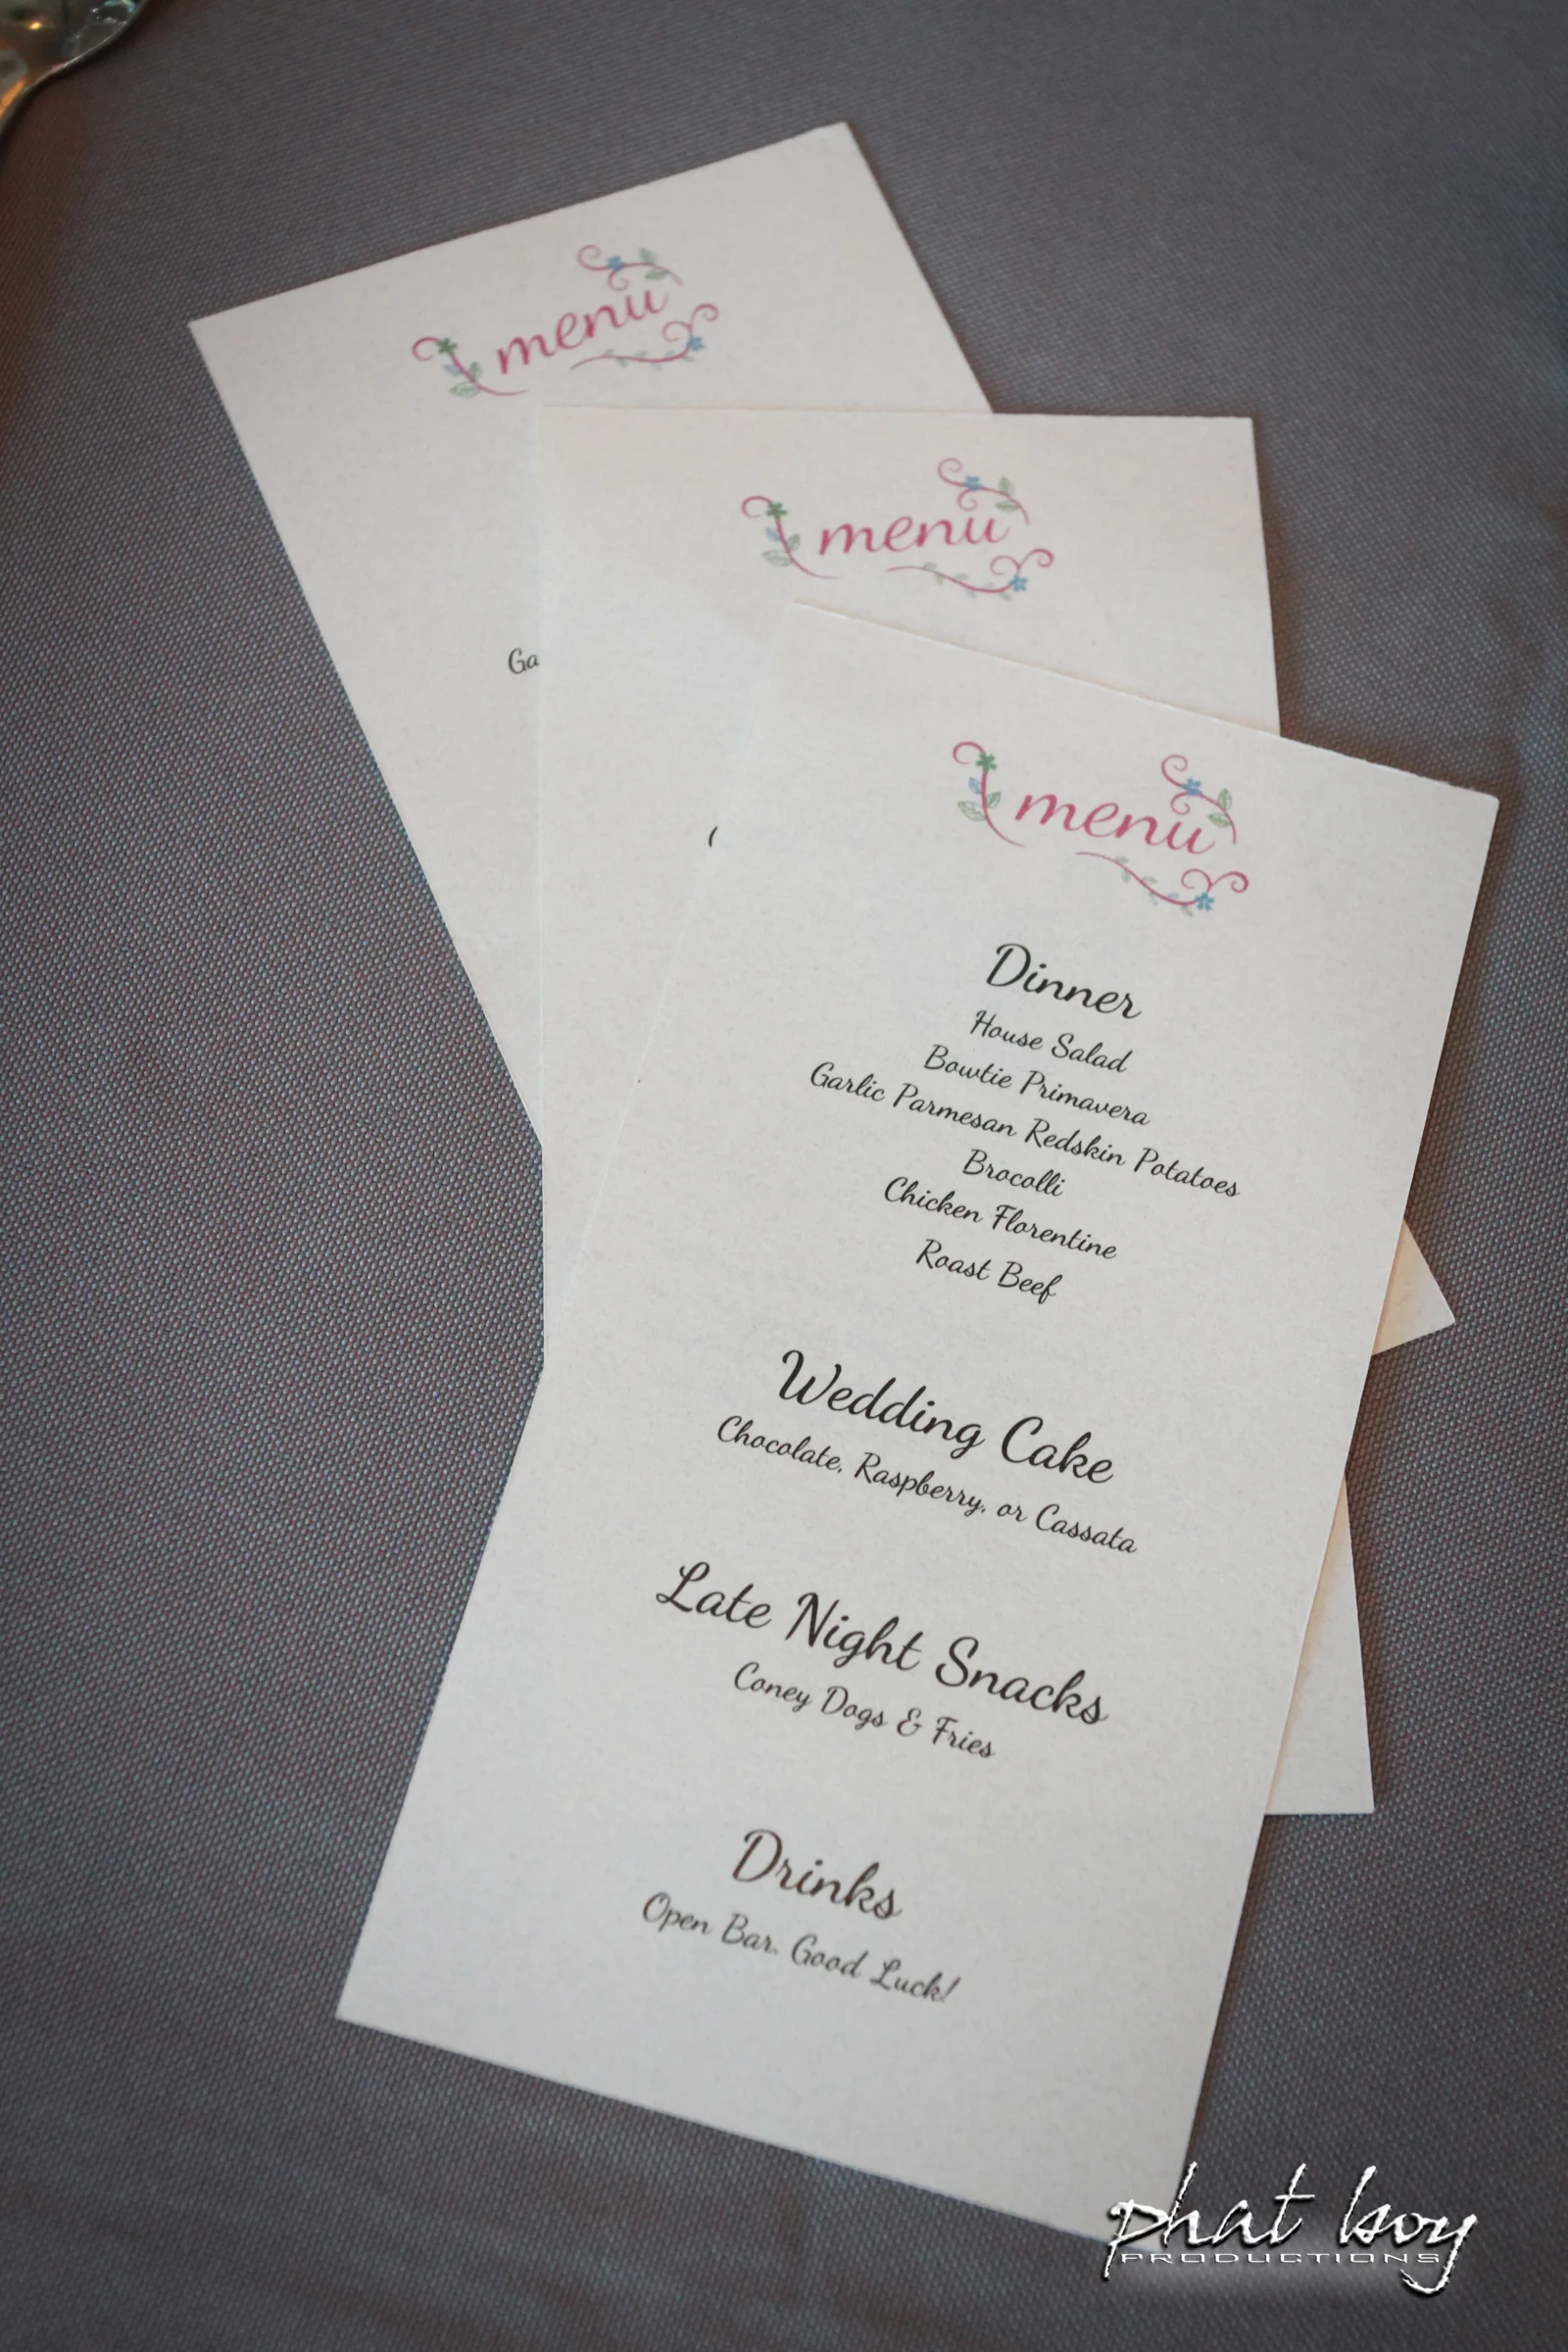 menu
Ga
menu
menu
Dinner
House Salad
Bowtie Primavera
Garlic Parmesan Redskin Potatoes
Brocolli
Chicken Florentine
Roast Beef
Wedding Cake
Chocolate, Raspberry, or Cassata
Late Night Snacks
Coney Dogs & Fries
Drinks
Open Bar. Good Luck!
phat boy
PRODUCTIONS